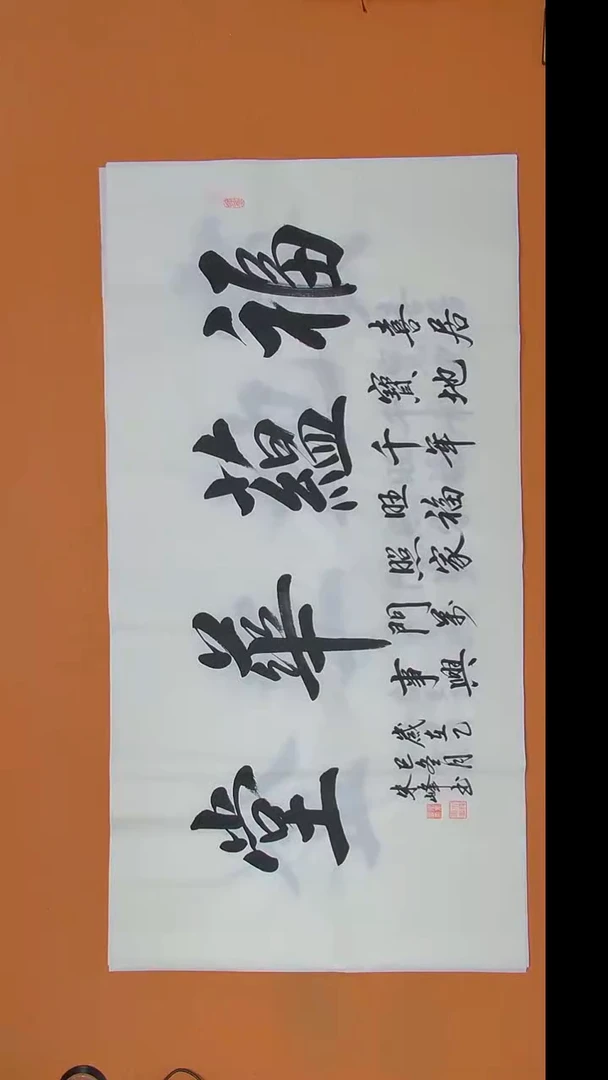 福蘊華堂
喜居
寶地
千年
旺福
照家
門萬
事興
歲在乙
巳冬月
朱峰書